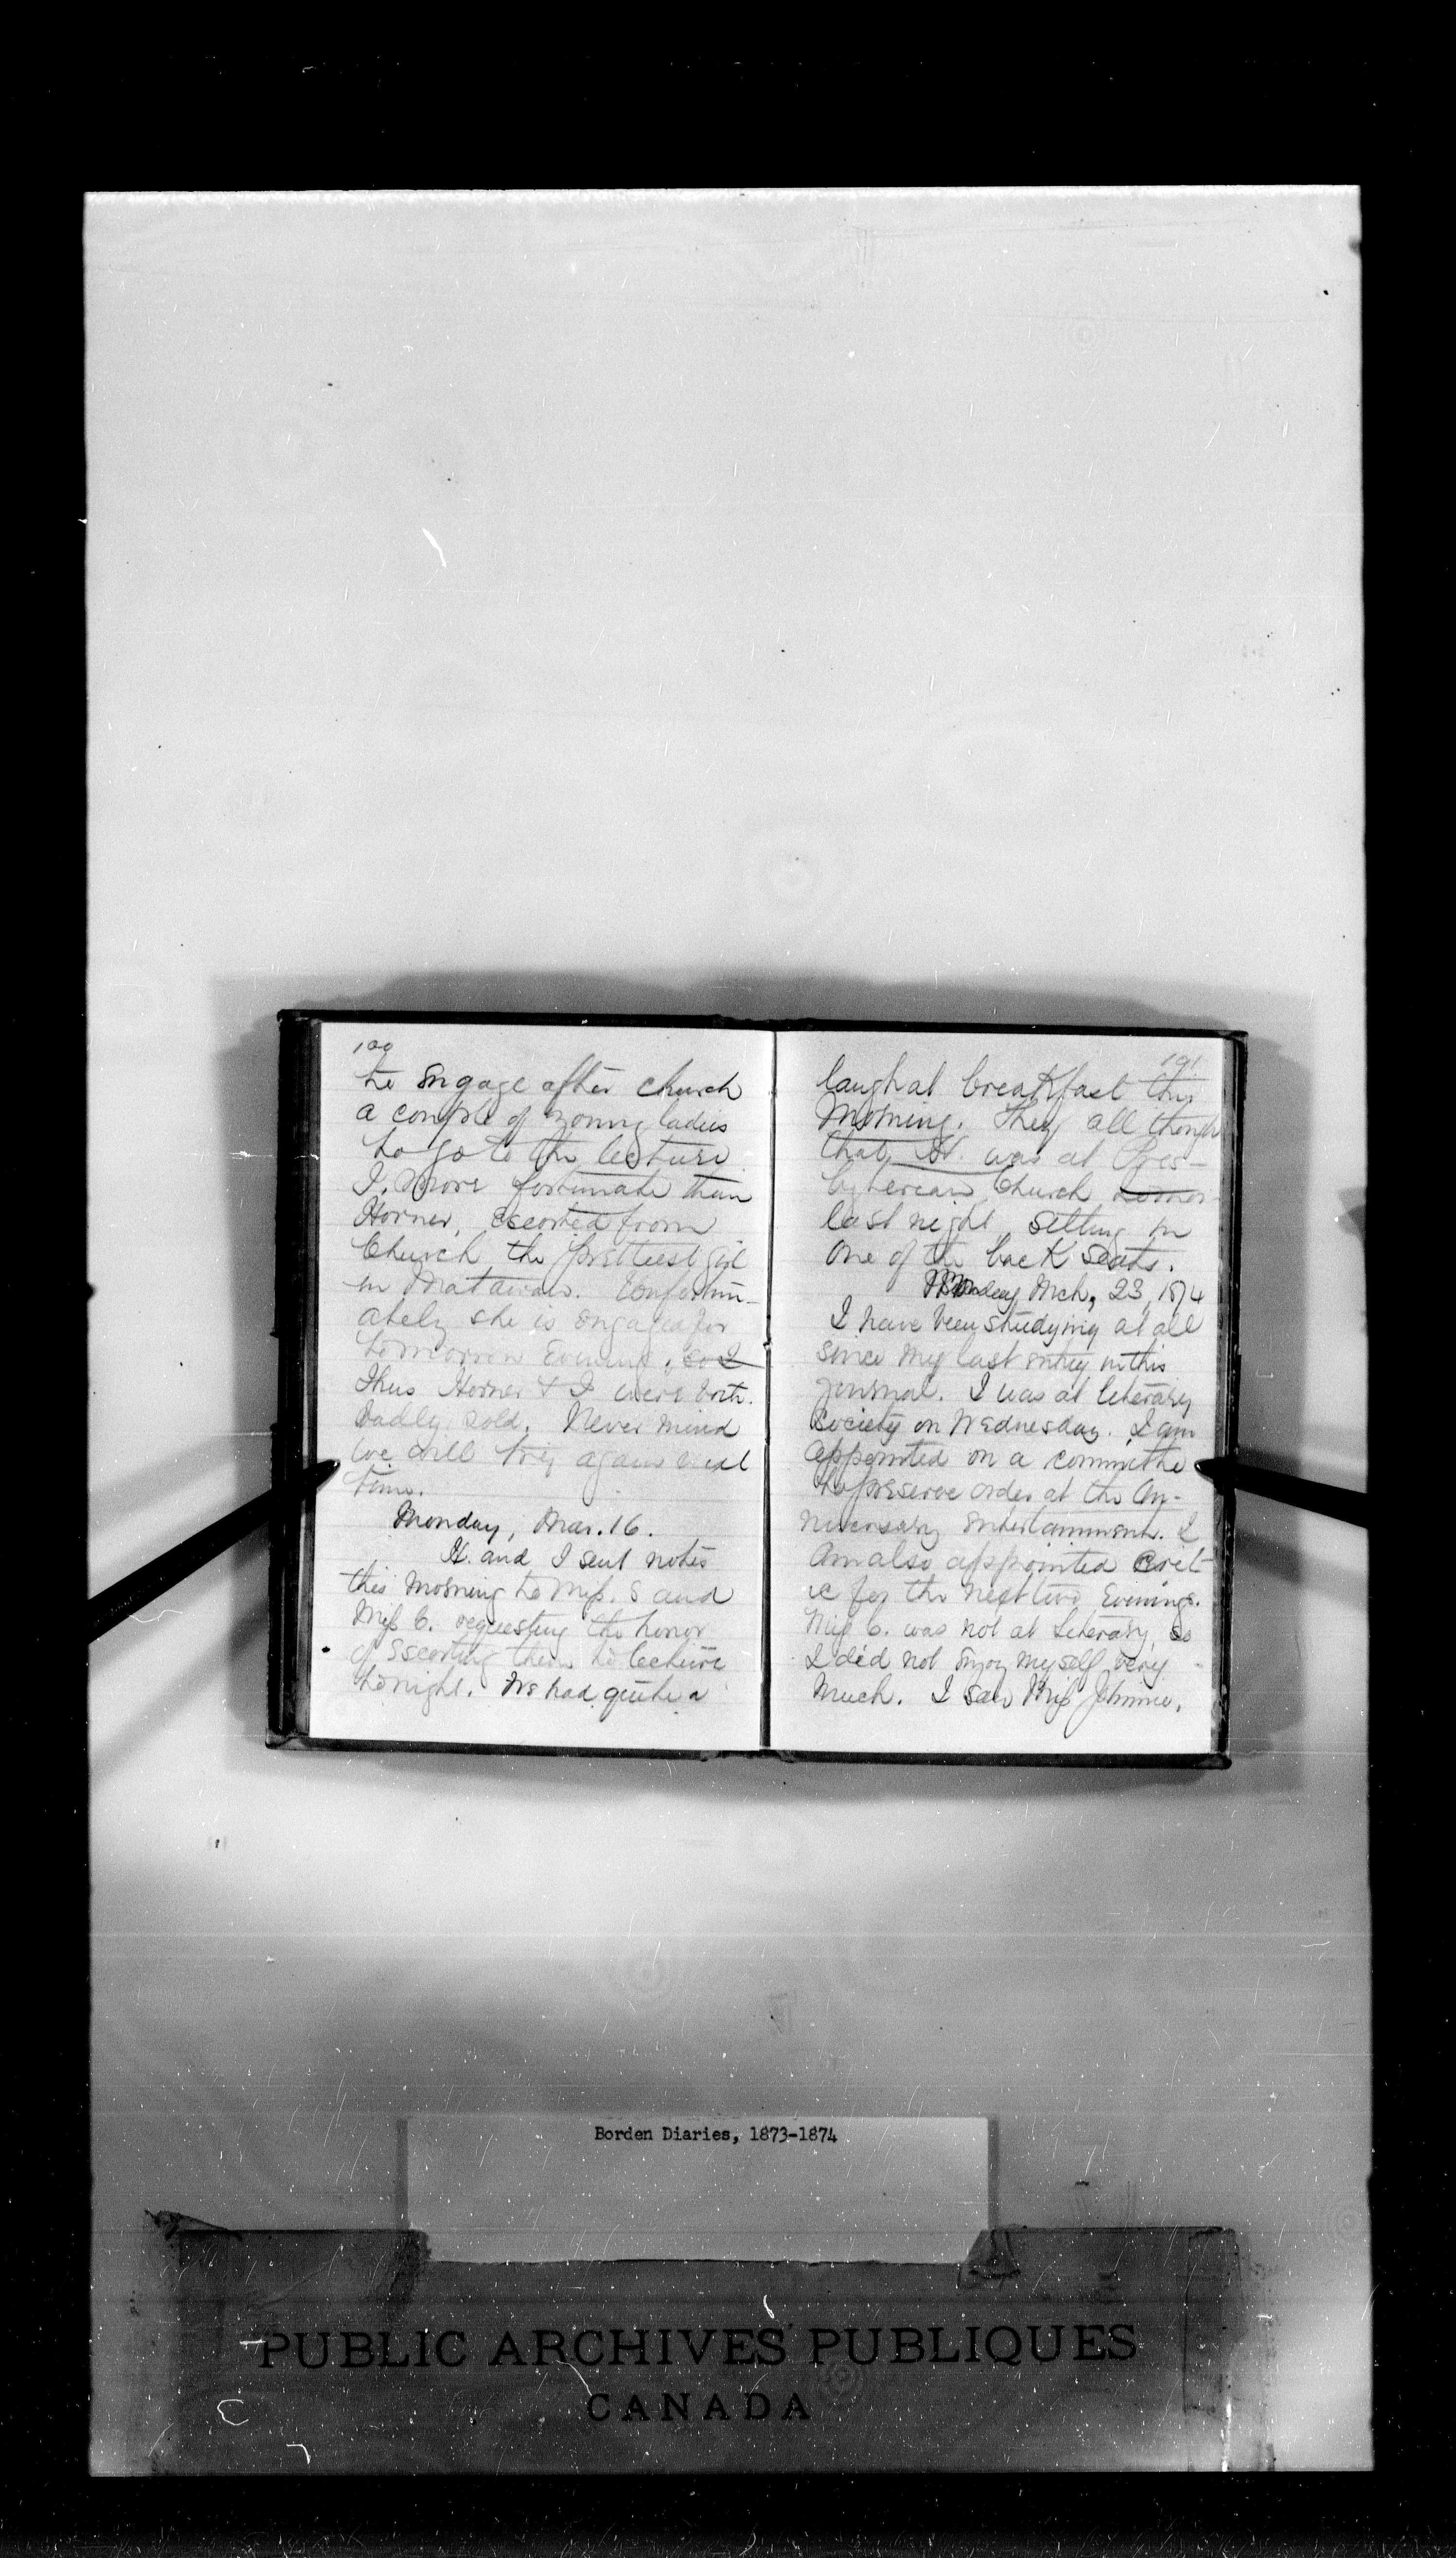 190
to engage after church
a couple of young ladies
to go to the lecture
I, more fortunate than
Horner, escorted from
Church the prettiest girl
in Matawan. Unfortun-
ately she is engaged for
tomorrow evening, so I
Thus Horner & I were both
badly sold. Never mind
we will try again next
time.
Monday, Mar. 16.
H. and I sent notes
this morning to Miss. S and
Miss C. requesting the honor
of escorting them to lecture
tonight. We had quite a
191
laugh at breakfast this
morning. They all though
that H. was at Pres-
byterian Church
last night, sitting in
one of the back seats.
Monday Mch, 23, 1874
I have been studying at all
since my last entry in this
journal. I was at literary
society on Wednesday. I am
appointed on a committee
to preserve order at the An-
niversary entertainment. I
am also appointed Crit-
ic for the next two evenings.
Miss C. was not at Literary, so
I did not enjoy myself very
much. I saw Miss Johnnie,
Borden Diaries, 1873-1874
PUBLIC ARCHIVES PUBLIQUES
CANADA